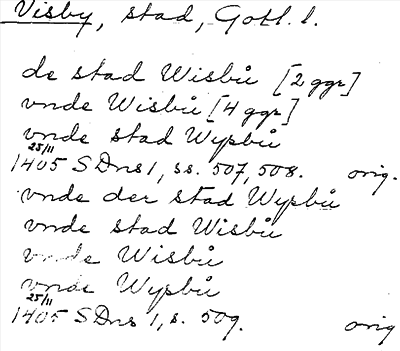 Visby, stad, Gotl. l.
de stad Wisbů [2 ggr]
vnde Wisbů [4 ggr]
vnde stad Wysbů
25/11
1405 SDns 1, ss. 507, 508. orig.
vnde der stad Wysbů
vnde stad Wisbů
vnde Wisbů
vnde Wysbů
25/11
1405 SDns 1, s. 509. orig